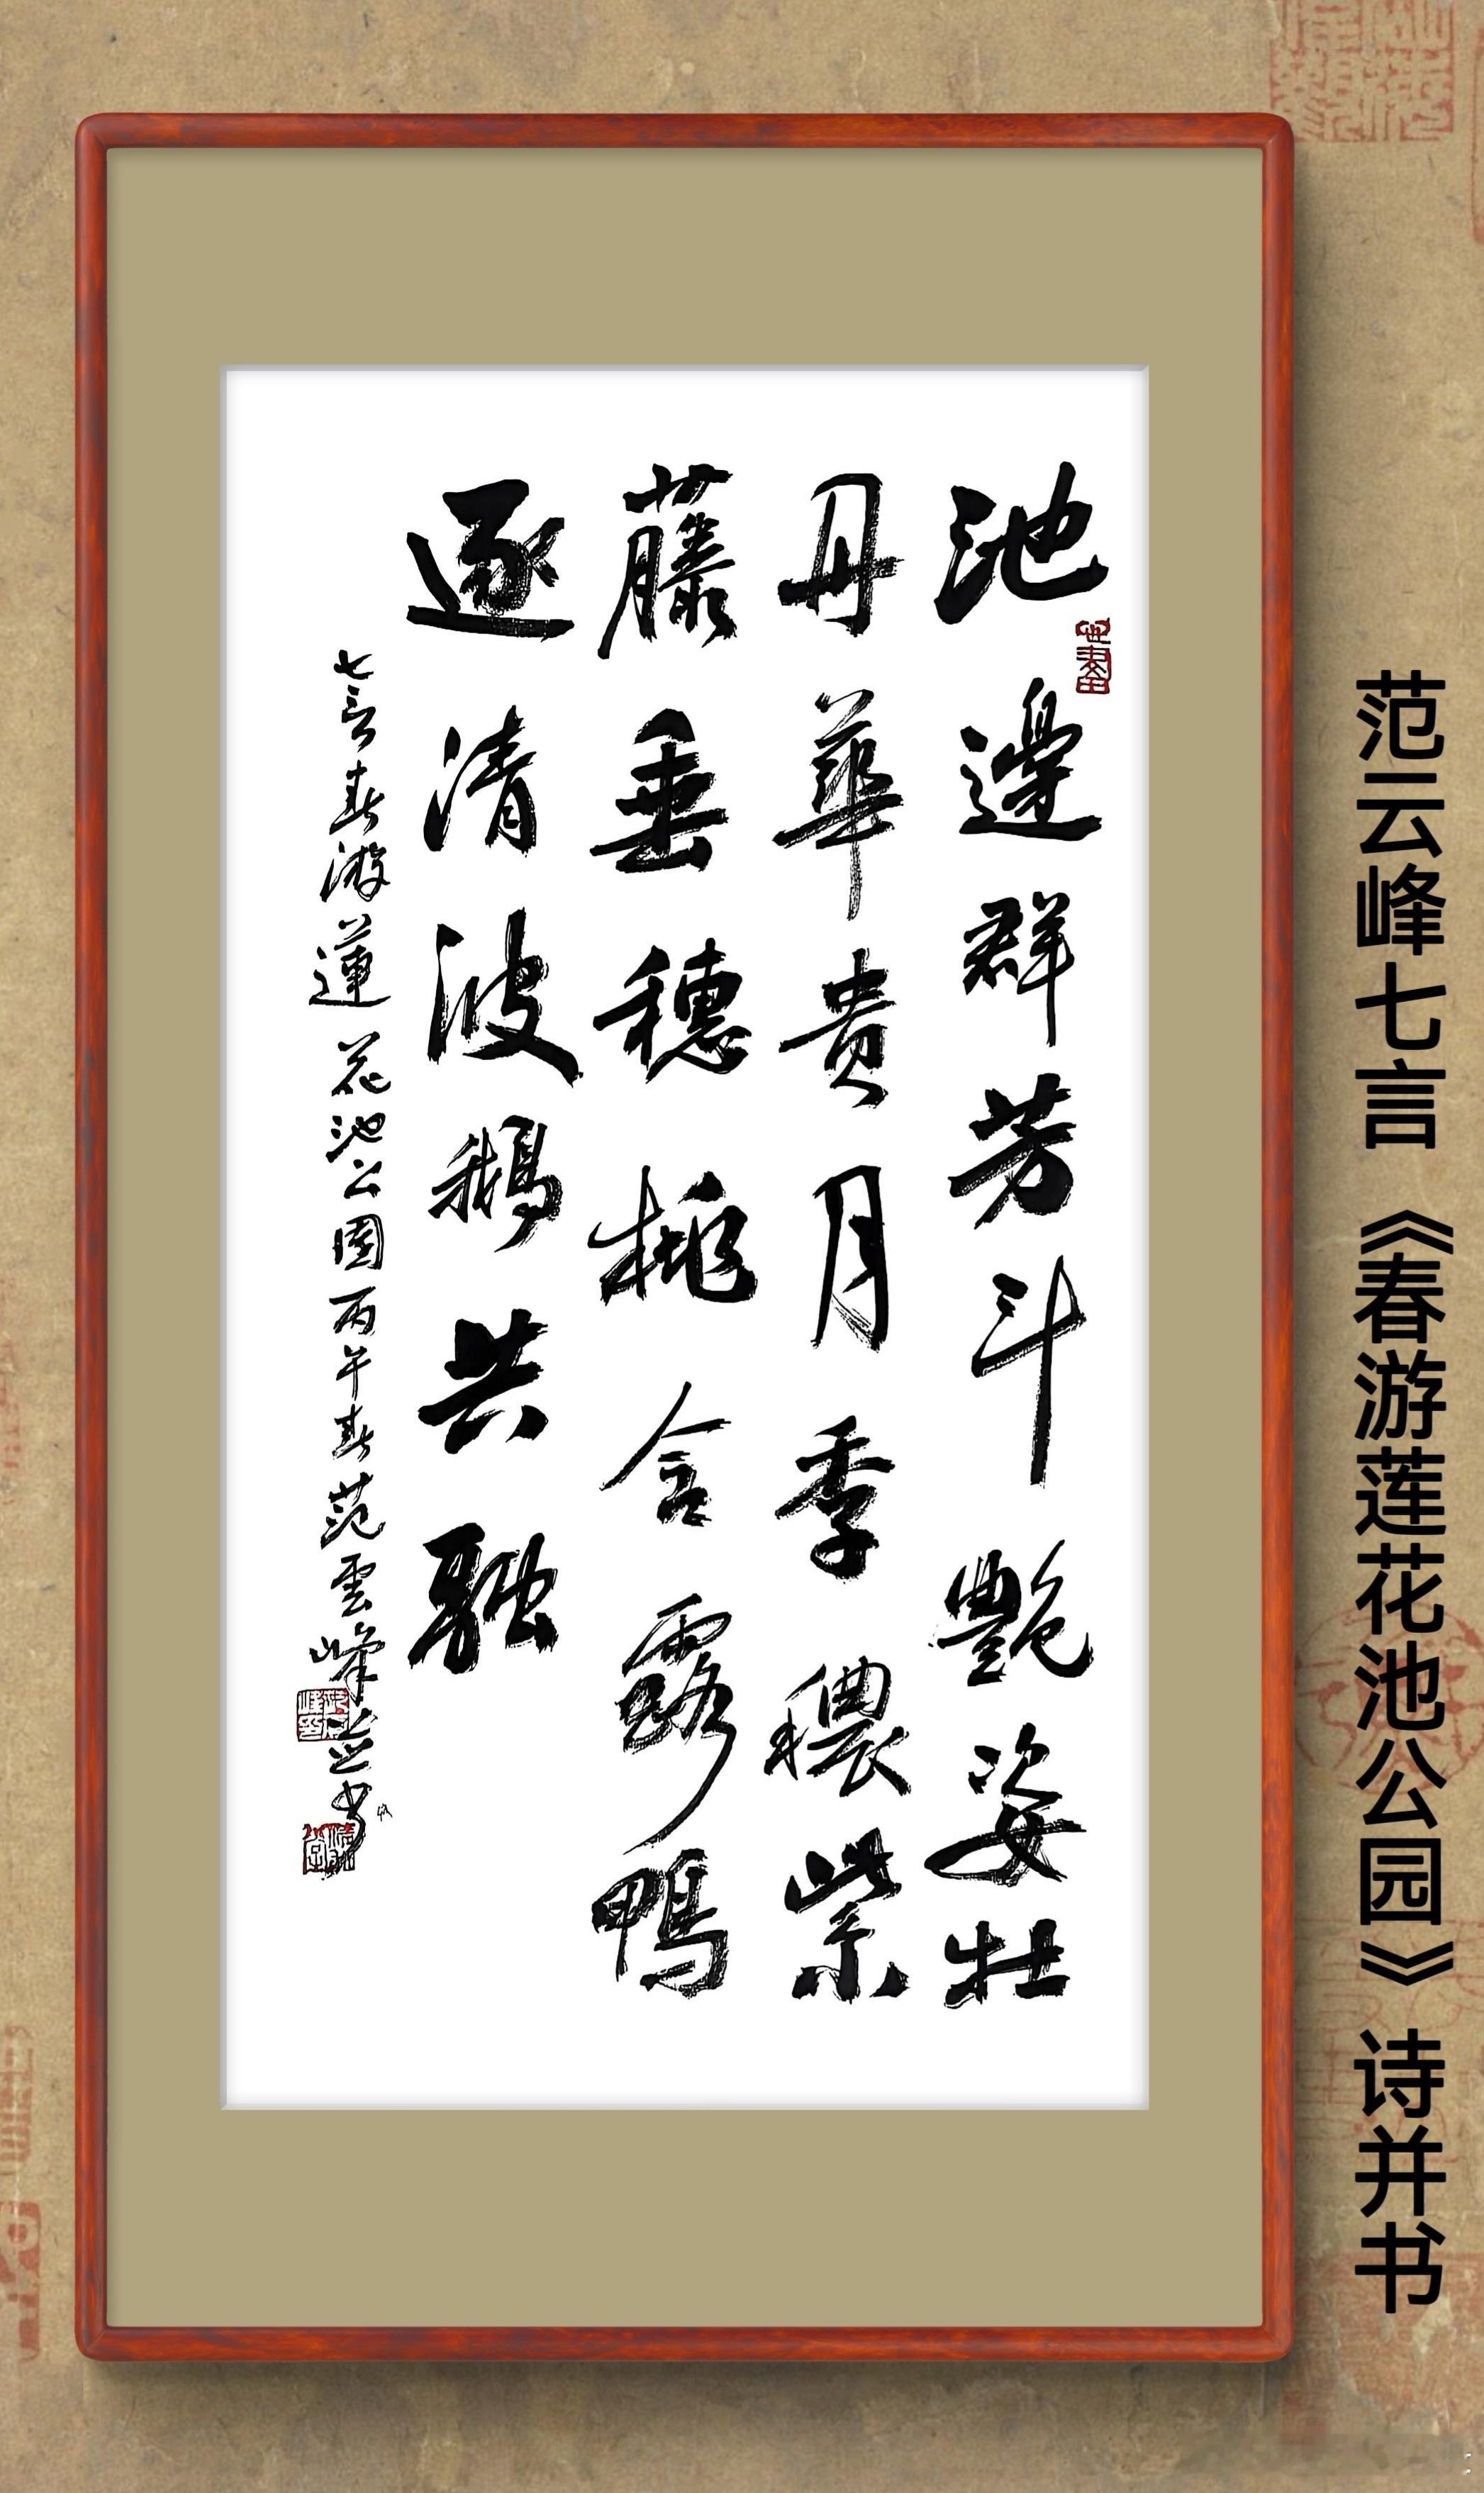 池邊群芳斗艷姿牡
丹華貴月季穠紫
藤垂穗桃含露鴨
逐清波鵝共融
七言春游蓮花池公園丙午春范雲峰並书
范云峰七言《春游莲花池公园》诗并书